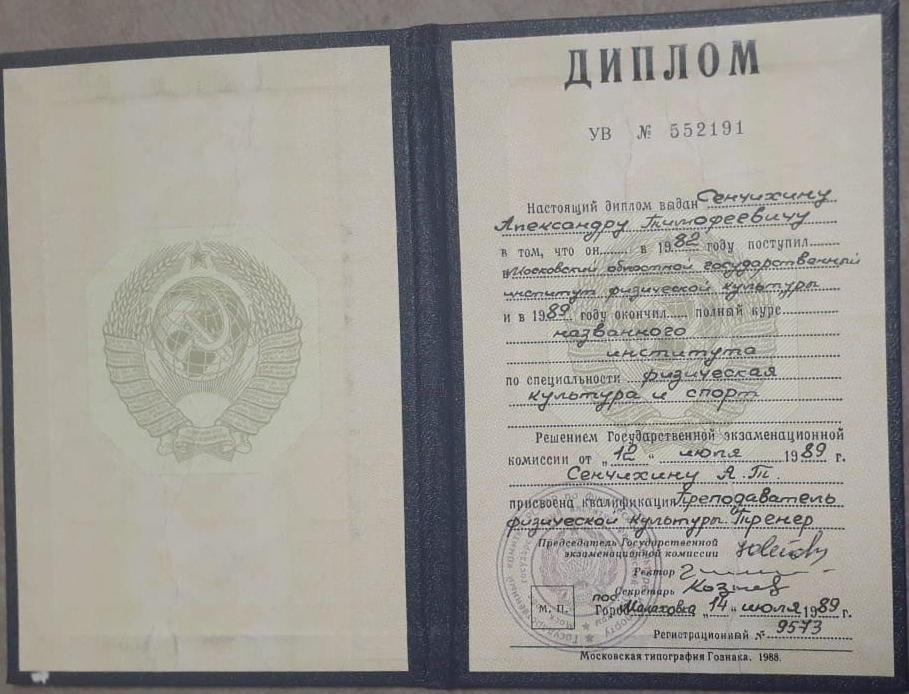 ДИПЛОМ
УВ № 552191
Настоящий диплом выдан Сенчихину
Александру Тимофеевичу
в том, что он в 1982 году поступил
в Московский областной государственный
институт физической культуры
и в 1989 году окончил полный курс
названного
института
по специальности физическая
культура и спорт
Решением Государственной экзаменационной
комиссии от „12“ июля 1989 г.
Сенчихину А.Т.
присвоена квалификация Преподаватель
физической культуры. Тренер
Председатель Государственной
экзаменационной комиссии
Ректор
Секретарь
пос.
М. П. Город Малаховка „14“ июля 1989 г.
Регистрационный № 9573
Московская типография Гознака. 1988.